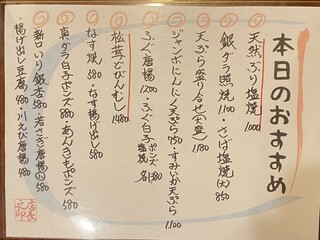 本日のおすすめ
天然ぶり塩焼 1000
銀ダラ照焼 1100・さんま塩焼(大) 850
天ぷら盛り合せ(大盛) 1180
ジャンボにんにく天ぷら 750・すみいか天ぷら 1100
ふぐ唐揚 1200・ふぐ白子ポンズ 塩焼 各1380
松茸どびんむし 1480
なす焼 580・なす揚げ出し 580
真ダラ白子ポンズ 880・あんきもポンズ 580
新口いり銀杏 580・若さぎ唐揚(小) 580
・揚げ出し豆腐 480・川えび唐揚 480